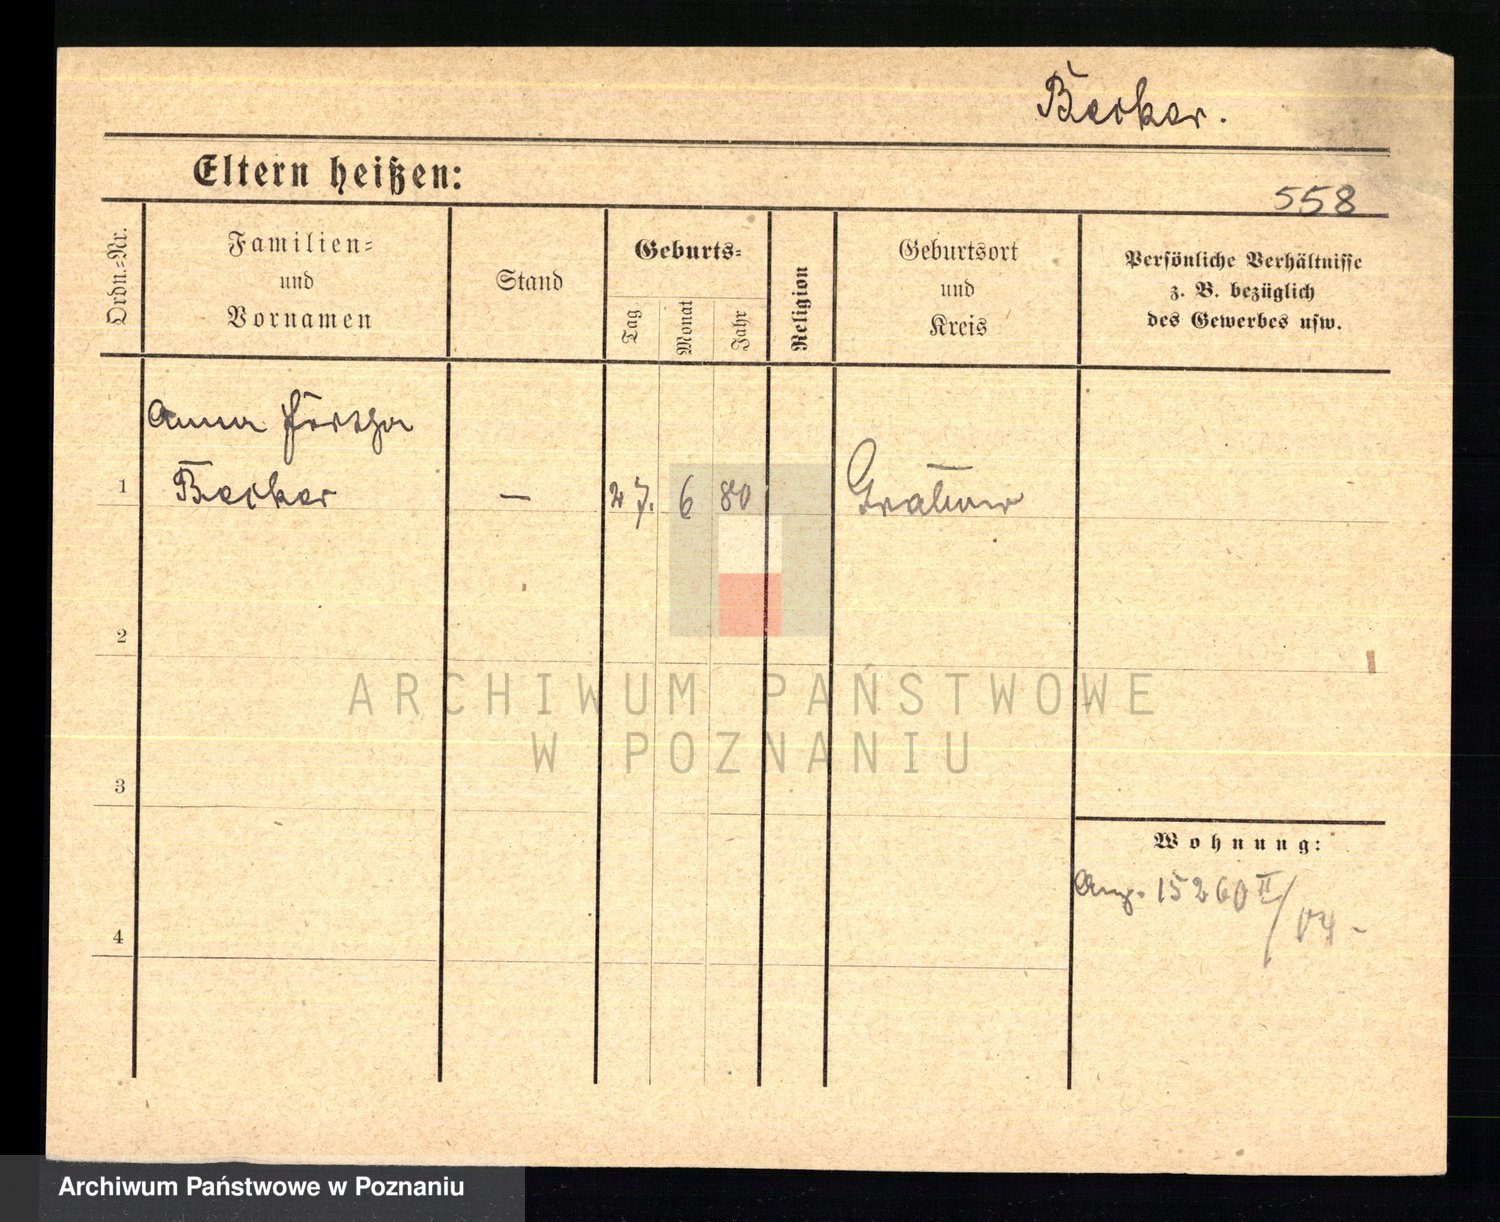 Becker.
Eltern heißen:
558
Ordn.=Nr.
Familien=
und
Vornamen
Stand
Geburts=
Tag
Monat
Jahr
Religion
Geburtsort
und
Kreis
Persönliche Verhältnisse
z. B. bezüglich
des Gewerbes usw.
Anna
1 Becker — 27. 6 80 Grabow
2
3
4
Wohnung:
Ang. 15260 II/04-
ARCHIWUM PAŃSTWOWE
W POZNANIU
Archiwum Państwowe w Poznaniu